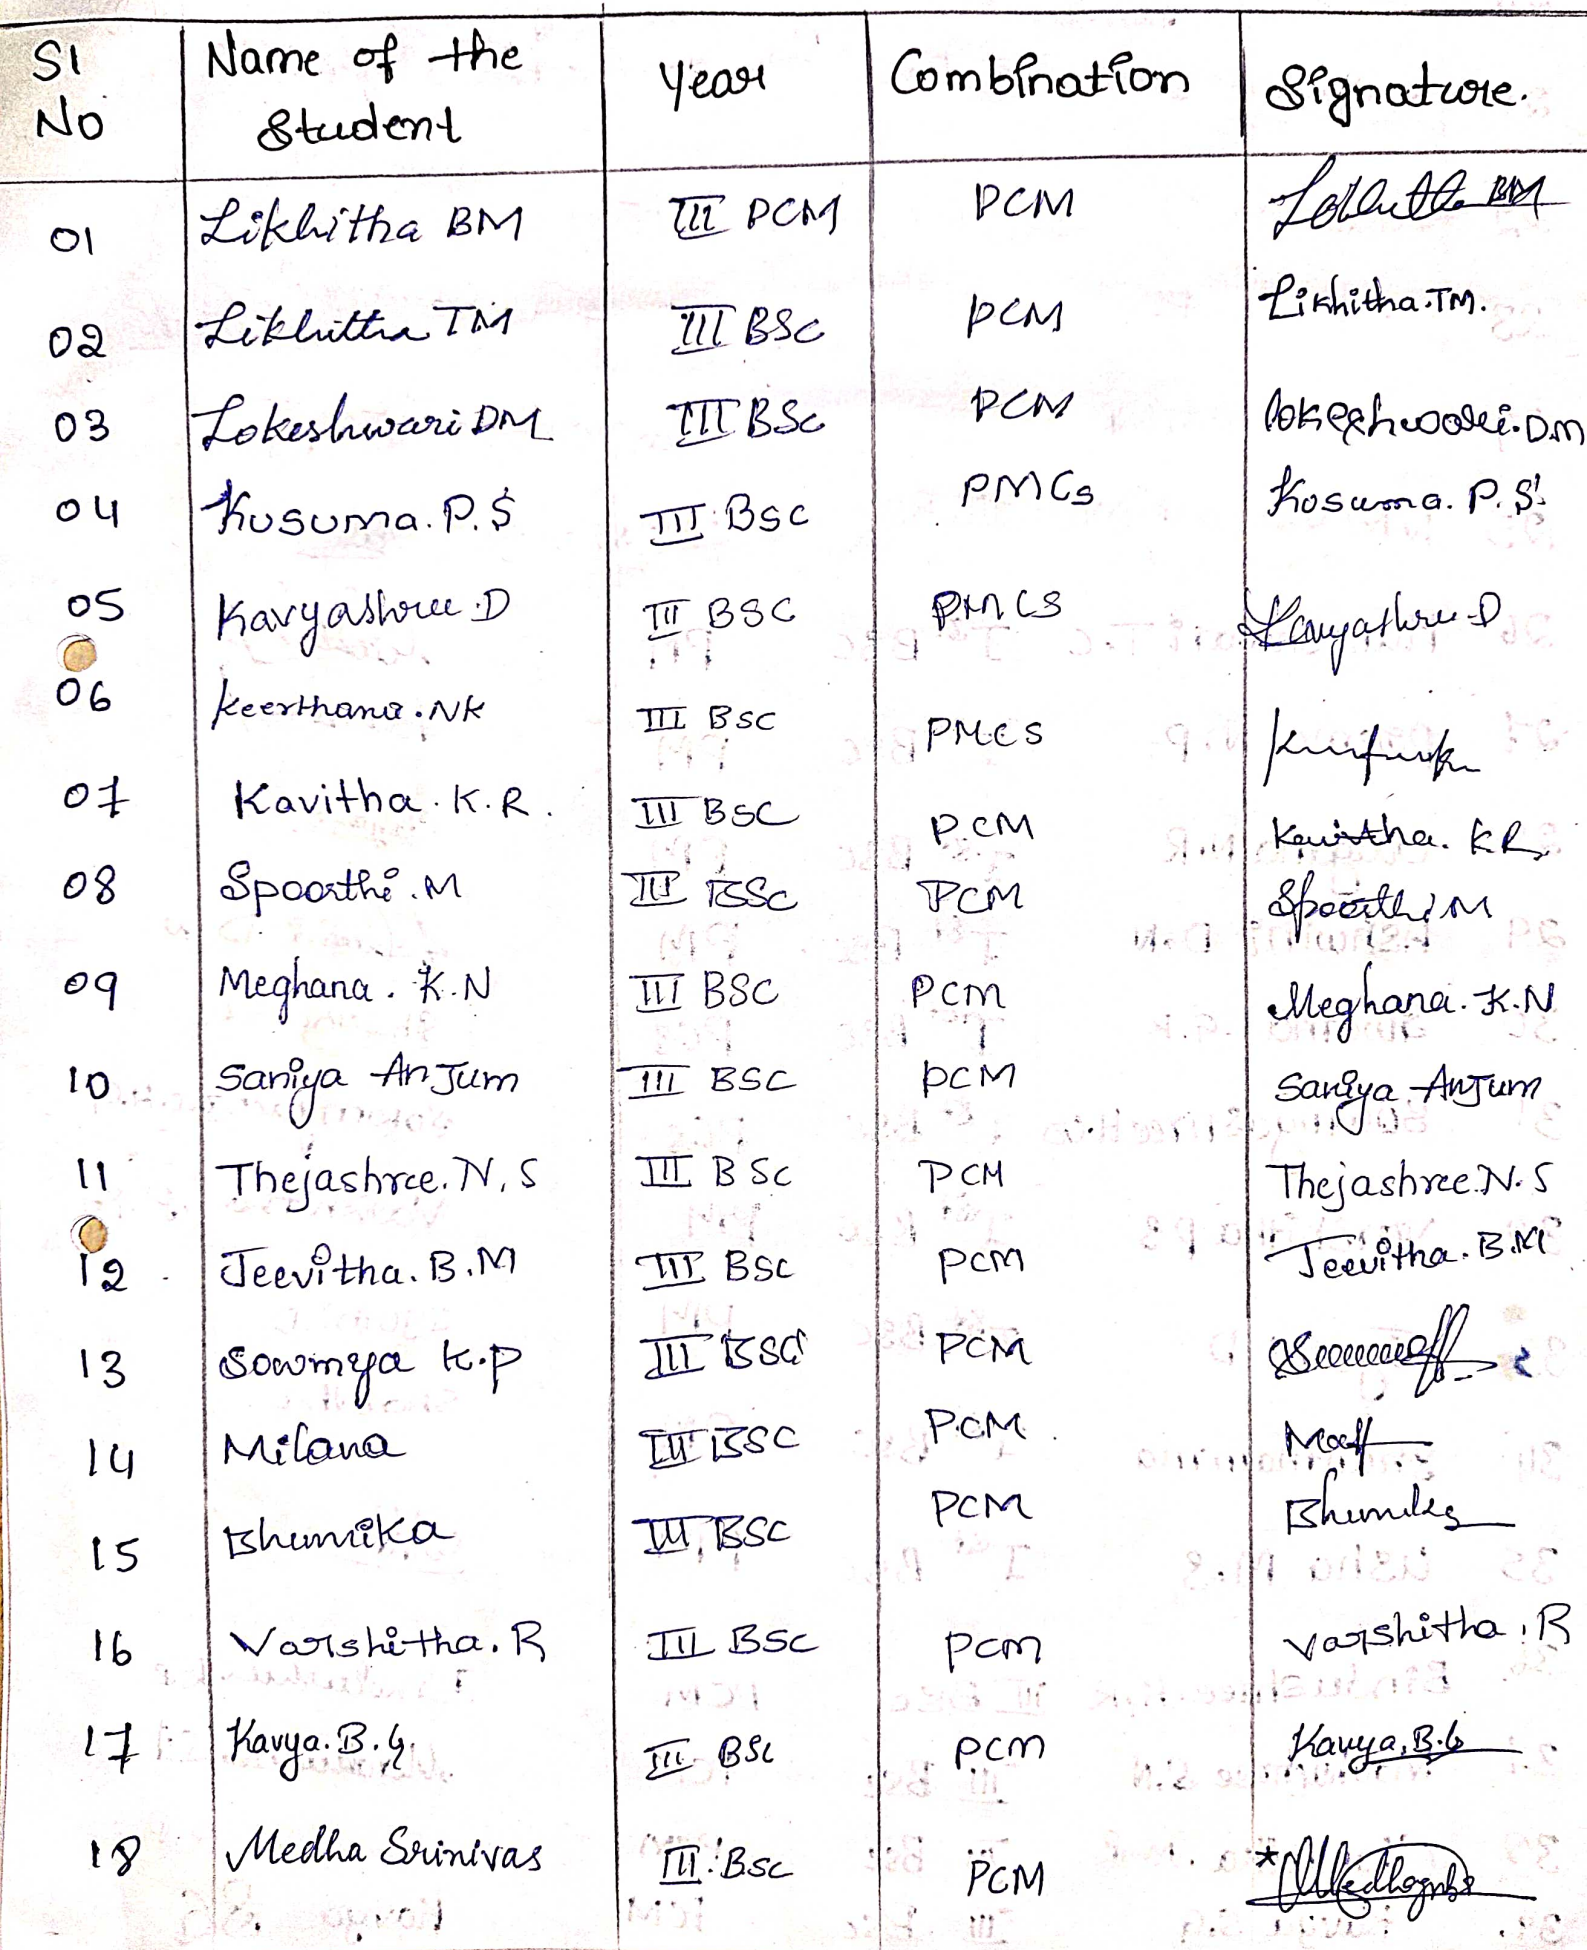 Sl No Name of the Student Year Combination Signature.
01 Likhitha BM III PCM PCM Likhitha BM
02 Likhitha TM III BSc PCM Likhitha.TM.
03 Lokeshwari DM III BSc PCM lokeshwari.DM
04 Kusuma. P.S III BSc PMCs Kusuma. P.S.
05 Kavyashree.D III BSC PMCS Kavyashree.D
06 Keerthana.NK III BSC PMCS
07 Kavitha.K.R. III BSC PCM Kavitha. KR
08 Spoorthi.M III BSc PCM Spoorthi M
09 Meghana. K.N III BSC PCM Meghana. K.N
10 Saniya AnJum III BSC PCM Saniya AnJum
11 Thejashree. N.S III BSc PCM Thejashree.N.S
12 Jeevitha. B.M III BSC PCM Jeevitha. B.M
13 Sowmya K.P III BSC PCM
14 Milana III BSC PCM
15 Bhumika III BSC PCM Bhumika
16 Varshitha. R III BSC PCM Varshitha. R
17 Kavya. B.G. III BSc PCM Kavya. B.G
18 Medha Srinivas III BSc PCM